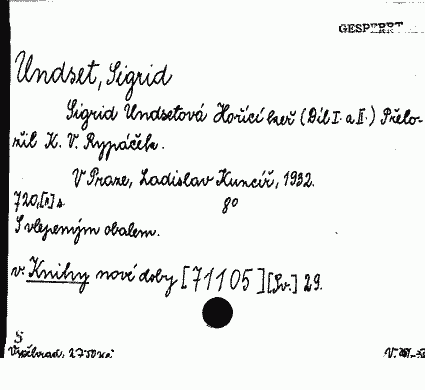 GESPERRT
Undset, Sigrid
Sigrid Undsetová Hořící keř (Díl I. a II.) Přelo-
žil K. V. Rypáček.
V Praze, Ladislav Kuncíř, 1932.
720,[1] s. 8°
S vlepeným obalem.
v. Knihy nové doby [71105] [Sv.] 29.
S